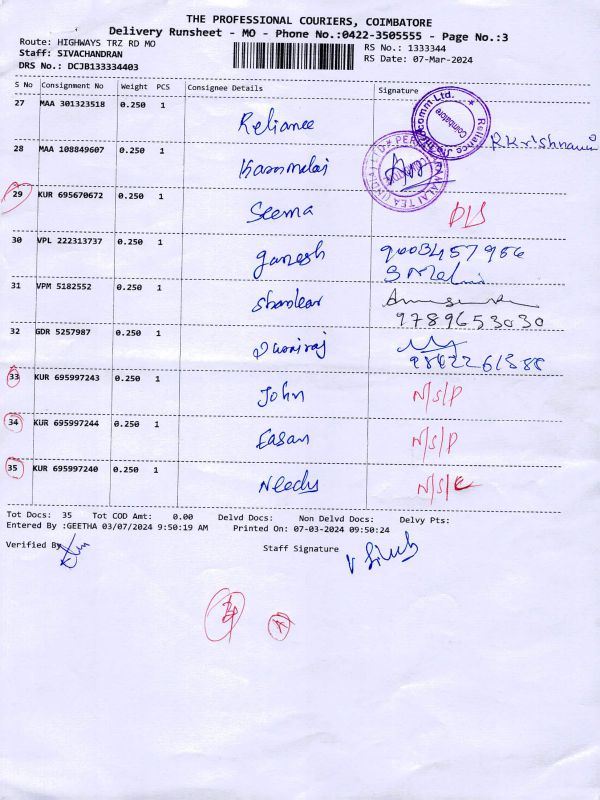 THE PROFESSIONAL COURIERS, COIMBATORE
Delivery Runsheet - MO - Phone No.:0422-3505555 - Page No.:3
Route: HIGHWAYS TRZ RD MO RS No.: 1333344
Staff: SIVACHANDRAN RS Date: 07-Mar-2024
DRS No.: DCJB133334403
S No Consignment No Weight PCS Consignee Details Signature
27 MAA 301323518 0.250 1 Reliance
28 MAA 108849607 0.250 1
29 KUR 695670672 0.250 1 Seema D/S
30 VPL 222313737 0.250 1 ganesh
31 VPM 5182552 0.250 1 9789653030
32 GDR 5257987 0.250 1
33 KUR 695997243 0.250 1 John N/S/P
34 KUR 695997244 0.250 1 Easan N/S/P
35 KUR 695997240 0.250 1 Needs
Tot Docs: 35 Tot COD Amt: 0.00 Delvd Docs: Non Delvd Docs: Delvy Pts:
Entered By :GEETHA 03/07/2024 9:50:19 AM Printed On: 07-03-2024 09:50:24
Verified By Staff Signature